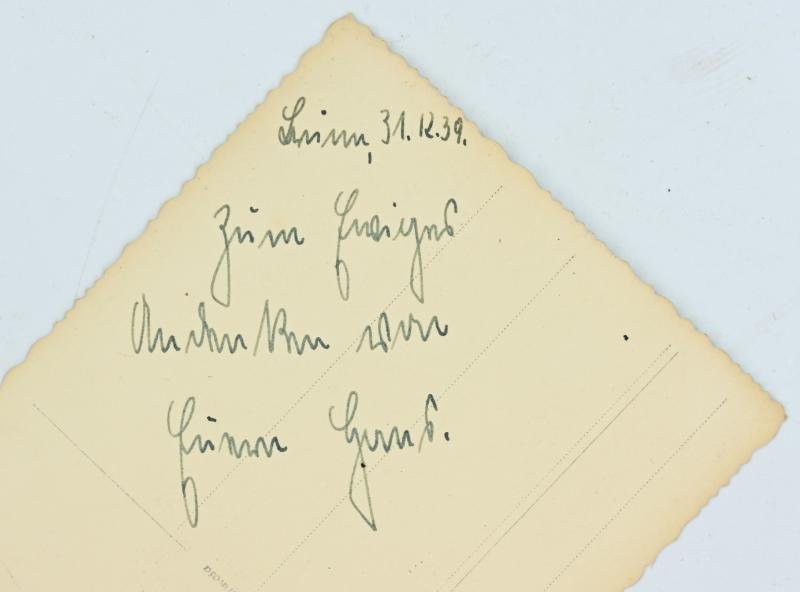 Brünn, 31.12.39.
Zum Ewiges
Andenken von
Euern Hans.